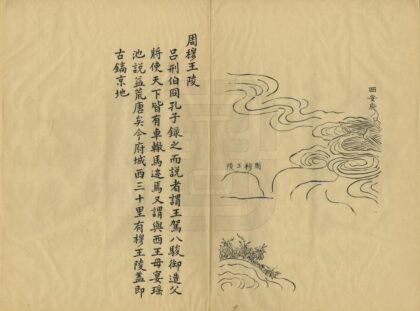 周穆王陵
呂刑伯冏孔子錄之而說者謂王駕八駿御造父
將使天下皆有車轍馬迹焉又謂與西王母宴瑤
池說益荒唐矣今府城西三十里有穆王陵蓋即
古鎬京地
西安府
周穆王陵